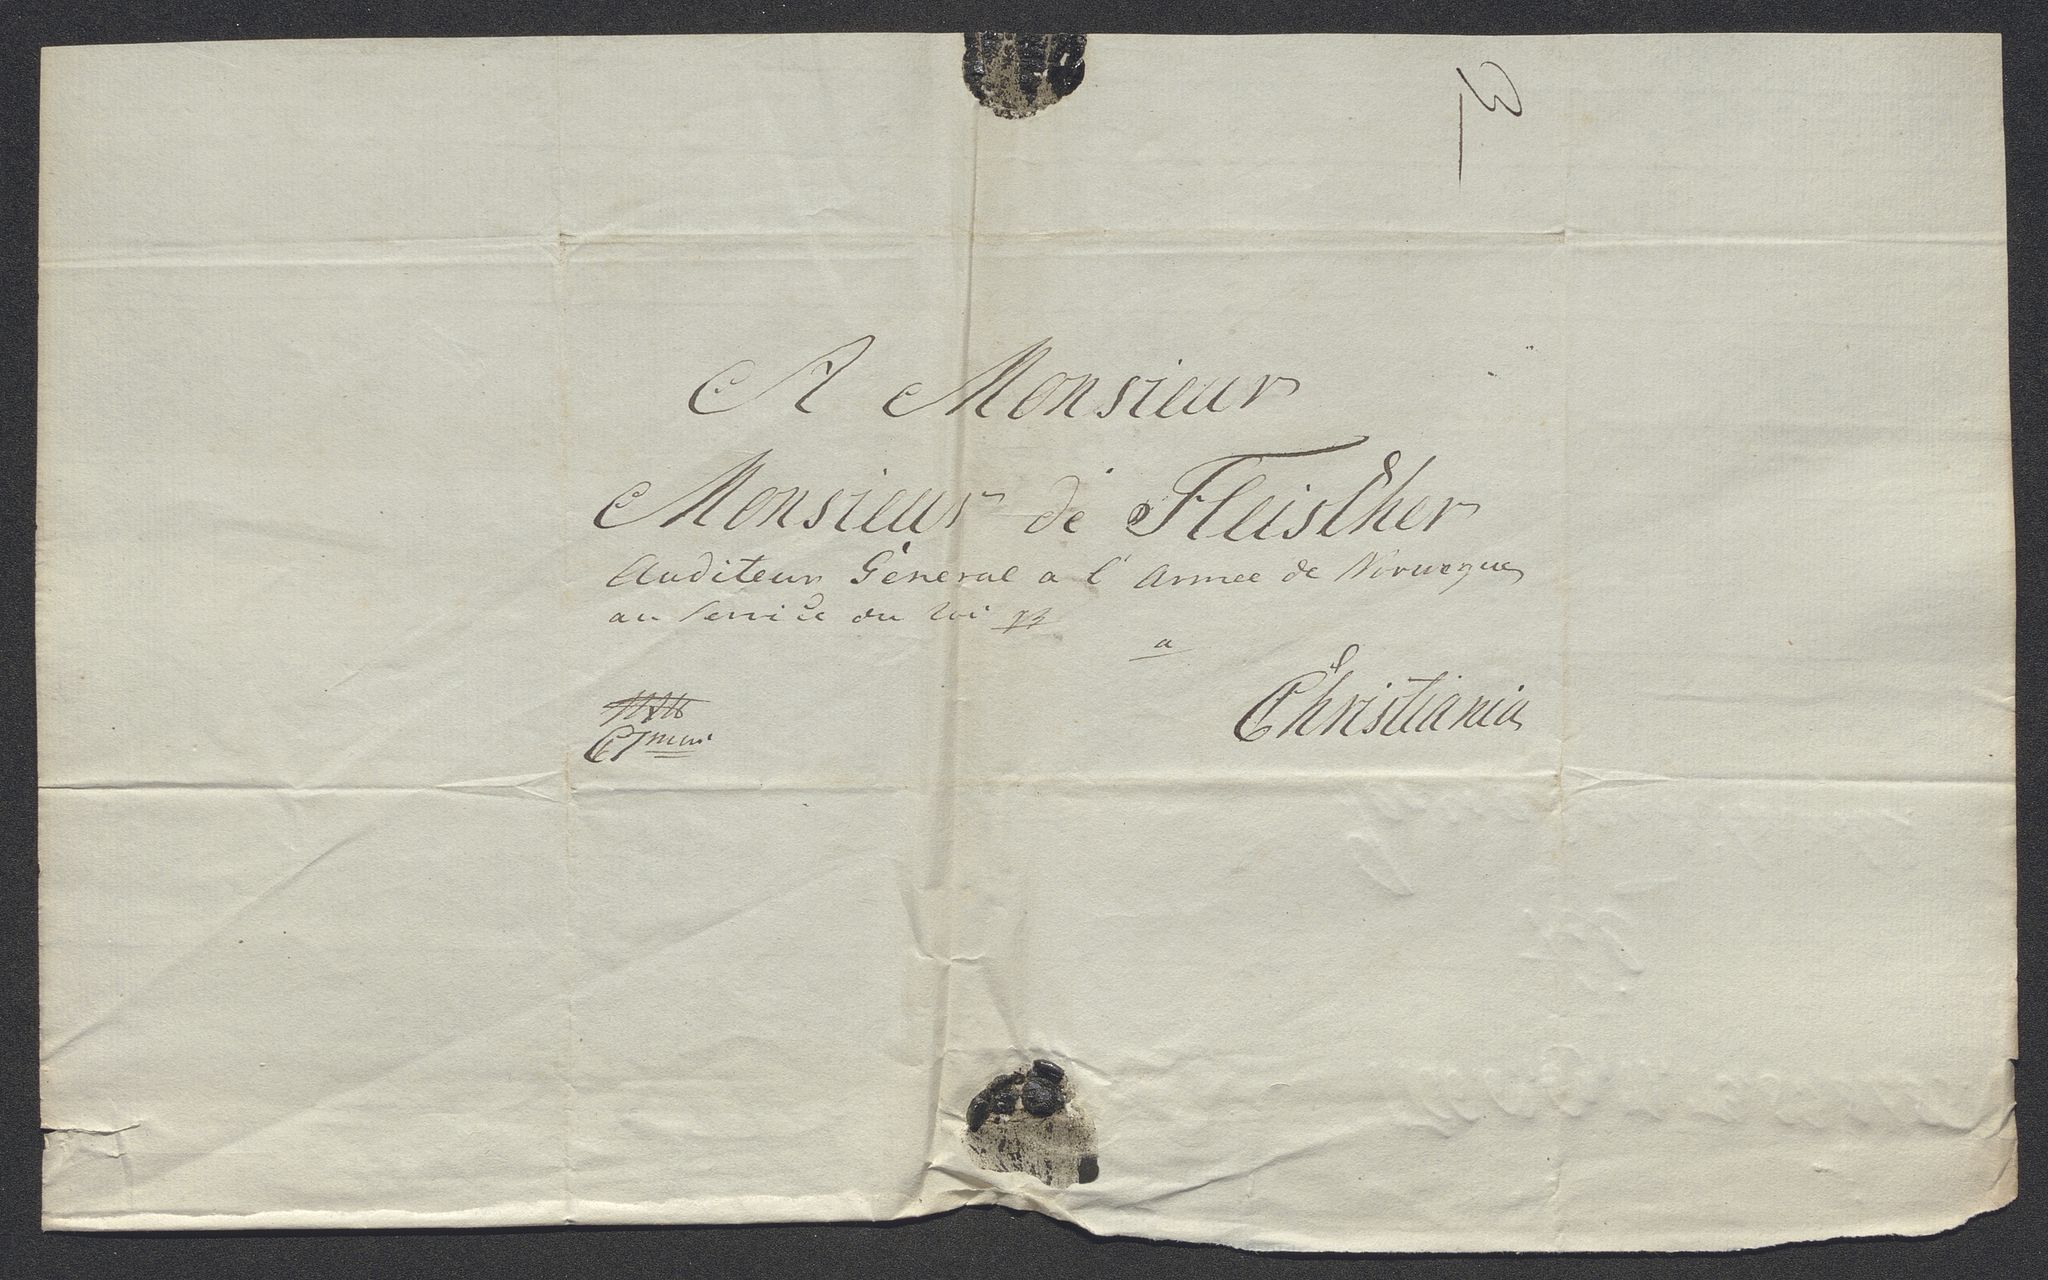 A Monsieur
Monsieur de Fleischer
Auditeur General a l' Armee de Norwegue
au Service du Roi
a
Christiania